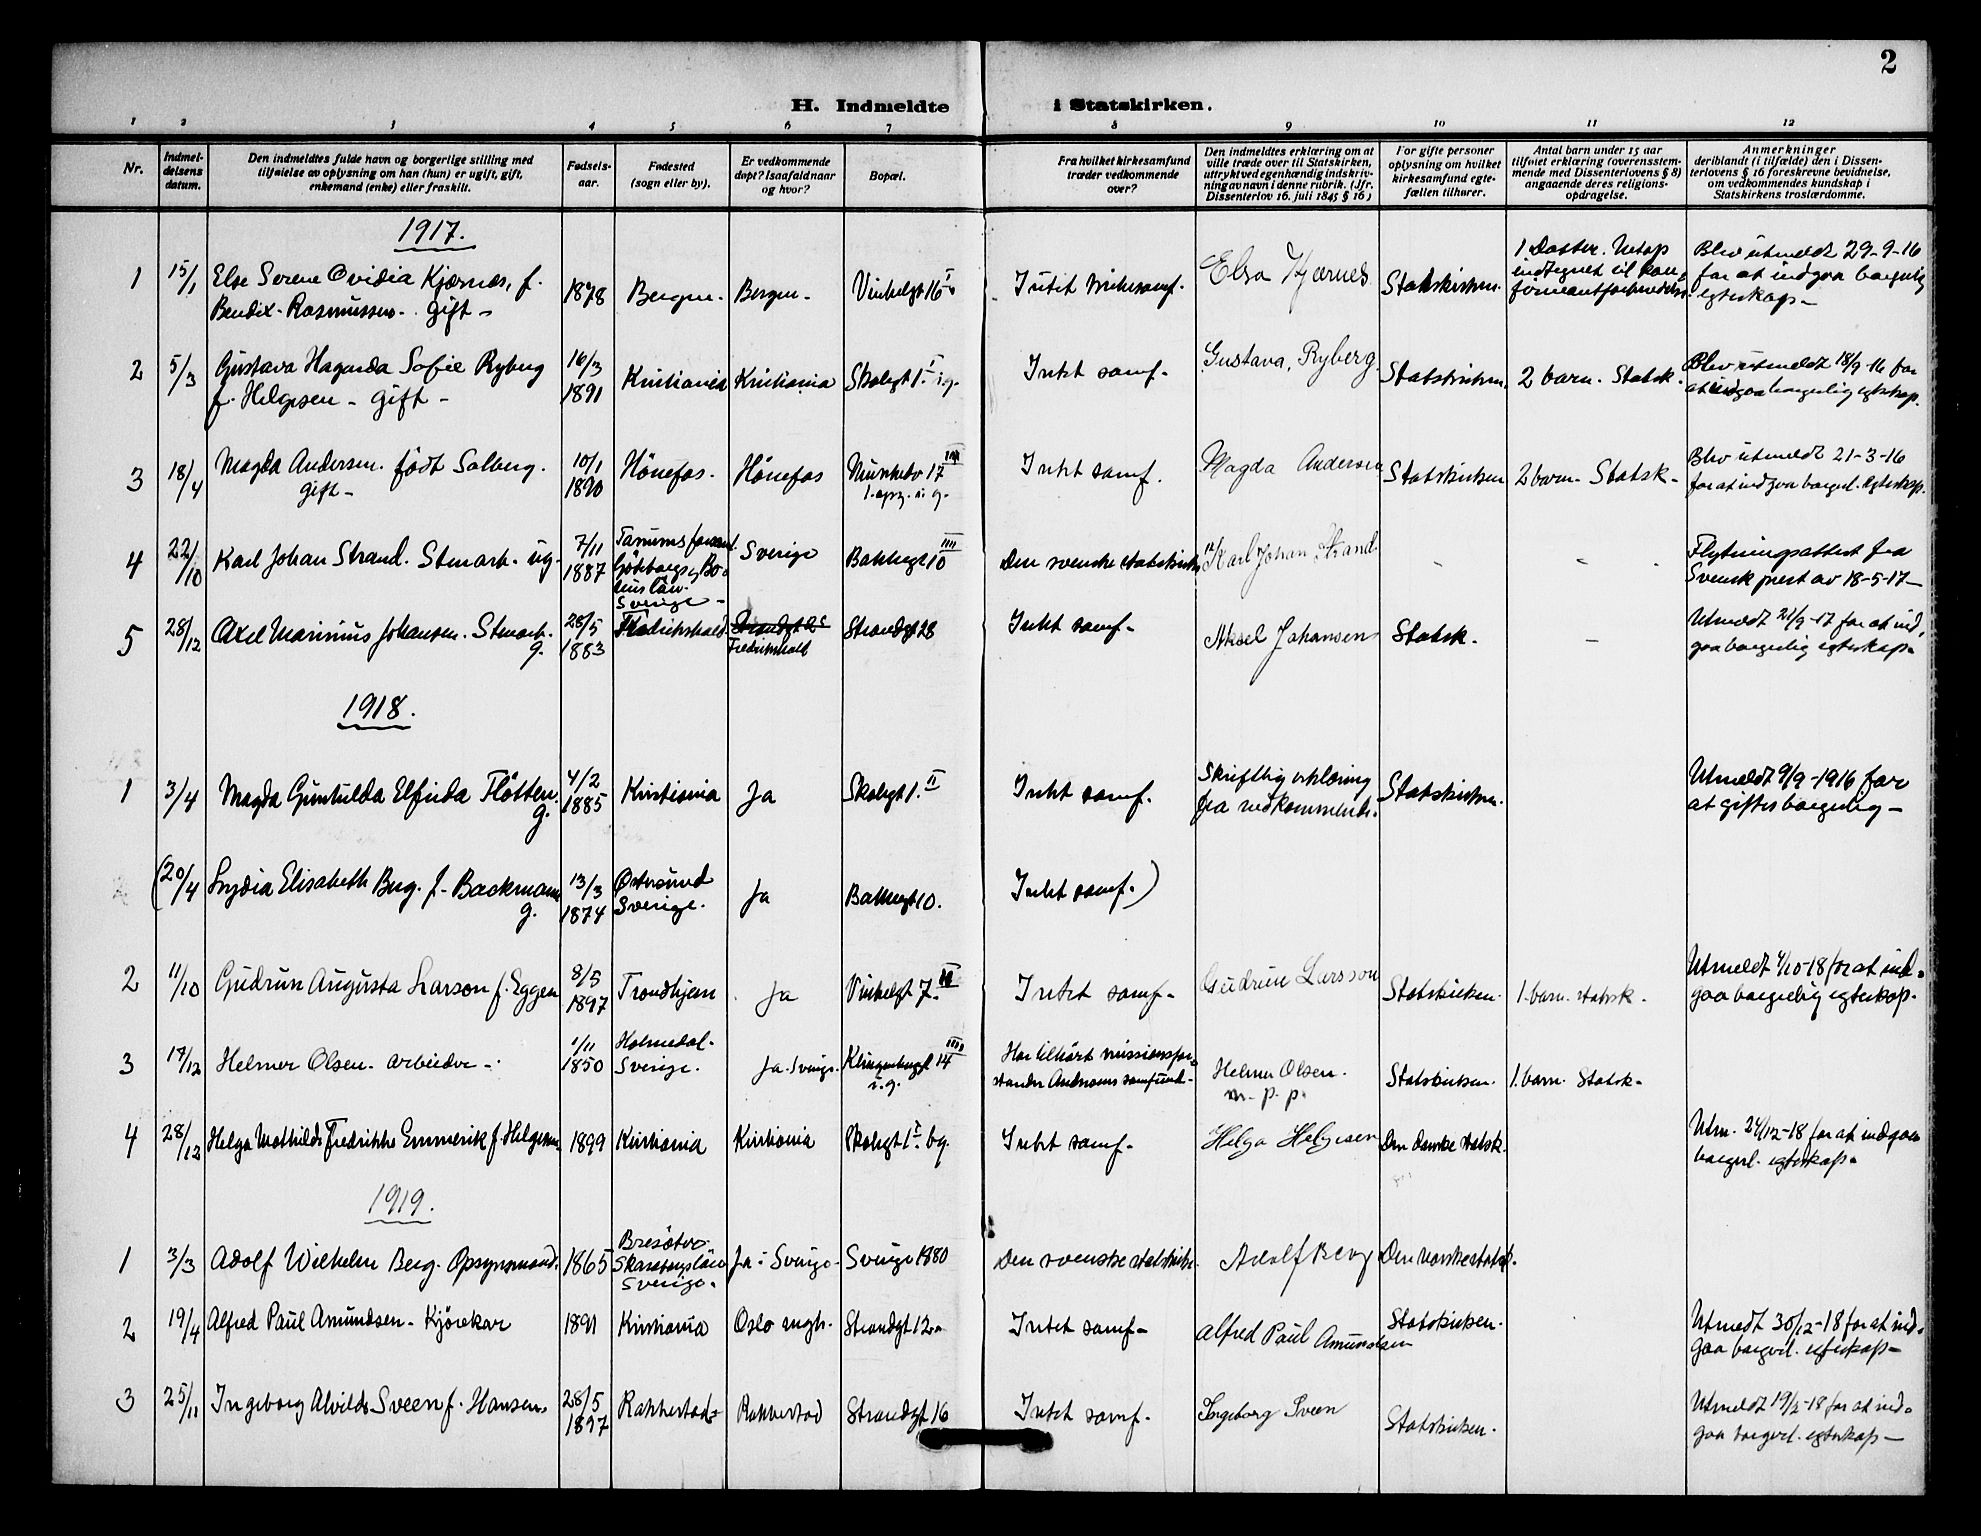 2
H. Indmeldte i Statskirken.
1 2 3 4 5 6 7 8 9 10 11 12
Nr.
Indmel-
delsens
datum.
Den indmeldtes fulde navn og borgerlige stilling med
tilføielse av oplysning om han (hun) er ugift, gift,
enkemand (enke) eller fraskilt.
Fødsels-
aar.
Fødested
(sogn eller by).
Er vedkommende
døpt? Isaafald naar
og hvor?
Bopæl.
Fra hvilket kirkesamfund
træder vedkommende
over?
Den indmeldtes erklæring om at
ville træde over til Statskirken,
uttrykt ved egenhændig indskriv-
ning av navn i denne rubrik. (Jfr.
Dissenterlov 16. juli 1845 § 16)
For gifte personer
oplysning om hvilket
kirkesamfund egte-
fællen tilhører.
Antal barn under 15 aar
tilføiet erklæring (overensstem-
mende med Dissenterlovens § 8)
angaaende deres religions-
opdragelse.
Anmerkninger
deriblandt (i tilfælde) den i Dissen-
terlovens § 16 foreskrevne bevidnelse,
om vedkommendes kundskap i
Statskirkens troslærdomme.
1917.
1
15/1
Else Serene Ovidia Kjærnes, f.
Bendix-Rasmussen - gift -
1878
Bergen.
Bergen -
Vinkelgt 16 I
Intet kirkesamf.
Elsa Kjærnes
Statskirken.
1 Datter. Netop
indtegnet til kon-
firmantforberedelse.
Blev utmeldt 29-9-16
for at indgaa borgerlig
egteskap -
2
5/3
Gustava Hagarda Sofie Ryberg
f. Helgesen - gift -
16/3
1891
Kristiania
Kristiania
Skolegt 1. I i.g.
Intet samf.
Gustava, Ryberg.
Statskirken.
2 barn. Statsk.
Blev utmeldt 18/9-16 for
at indgaa borgerlig egteskap.
3
18/4
Magda Andersen. født Solberg.
gift -
10/1
1890
Hönefos.
Hönefos
Munkedv 17 III
1. opg. i. g.
Intet samf.
Magda Andersen
Statskirken
2 barn. Statsk -
Blev utmeldt 21-3-16
for at indgaa borgerl. egteskap.
4
22/10
Karl Johan Strand. Stenarb. ug.
7/11
1887
Tanums forsaml.
Göteborgs og Bo-
hus län.
Sverige -
Sverige
Bakkegt 10 IIII
Den svenske statskirke
Karl Johan Strand
-
-
Flytningsattest fra
Svensk prest av 18-5-17 -
5
28/12
Axel Marinius Johansen. Stenarb.
g.
28/5
1883
Fredrikshald
Strandgt 28
Fredrikshald
Strandgt 28
Intet samf -
Aksel Johansen
Statsk.
-
Utmeldt 21/9-17 for at ind-
gaa borgerlig egteskap.
1918.
1
3/4
Magda Gunhilda Elfrida Flötten.
g.
4/2
1885
Kristiania
Ja
Skolegt 1. II
Intet samf.
Skriftlig erklæring
fra vedkommende.
Statskirken.
Utmeldt 9/9-1916 for
at giftes borgerlig -
(20/4
Lydia Elisabeth Berg. f. Backmann
g.
13/3
1874
Østersund
Sverige.
Ja
Bakkegt 10.
Intet samf.)
2
11/10
Gudrun Augusta Larson f. Eggen
8/5
1897
Trondhjem
Ja
Vinkelgt 7. III
Intet samf -
Gudrun Larsson
Statskirken.
1. barn. statsk.
Utmeldt 4/10-18 for at ind-
gaa borgerlig egteskap.
3
17/12
Helmer Olsen. arbeider -
1/11
1850
Holmedal.
Sverige.
Ja. Sverige.
Klingenberggt 14 IIII
i. g.
Har tilhørt missionsfor-
stander samfund -
Helmer Olsen.
m. p. p.
Statskirken.
1. barn. Statsk.
4
28/12
Helga Mathilde Fredrikke Emmerik f. Helgesen
1899
Kristiania
Kristiania
Skolegt 1 I. bg.
Intet samf -
Helga Helgesen
Den danske statsk.
Utm. 24/12-18 for at indgaa
borgerl. egteskap.
1919.
1
3/3
Adolf Wilhelm Berg. Opsynsmand.
1865
Sverige.
Ja i Sverige.
Sverige 1880
Den svenske statskirke.
Adolf Berg
Den norske statsk.
2
19/4
Alfred Paul Amundsen - Kjörekar
1891
Kristiania
Oslo mgh.
Strandgt 12 a
Intet samf -
Alfred Paul Amundsen
Statskirken.
Utmeldt 30/12-18 for at ind-
gaa borgerl. egteskap -
3
25/11
Ingeborg Alvilde Sveen f. Hansen
28/5
1897
Rakkestad
Rakkestad
Strandgt 16
Intet samf.
Ingeborg Sveen
Statskirken.
Utmeldt 19/2-18 for at ind-
gaa borgerl. egteskap -